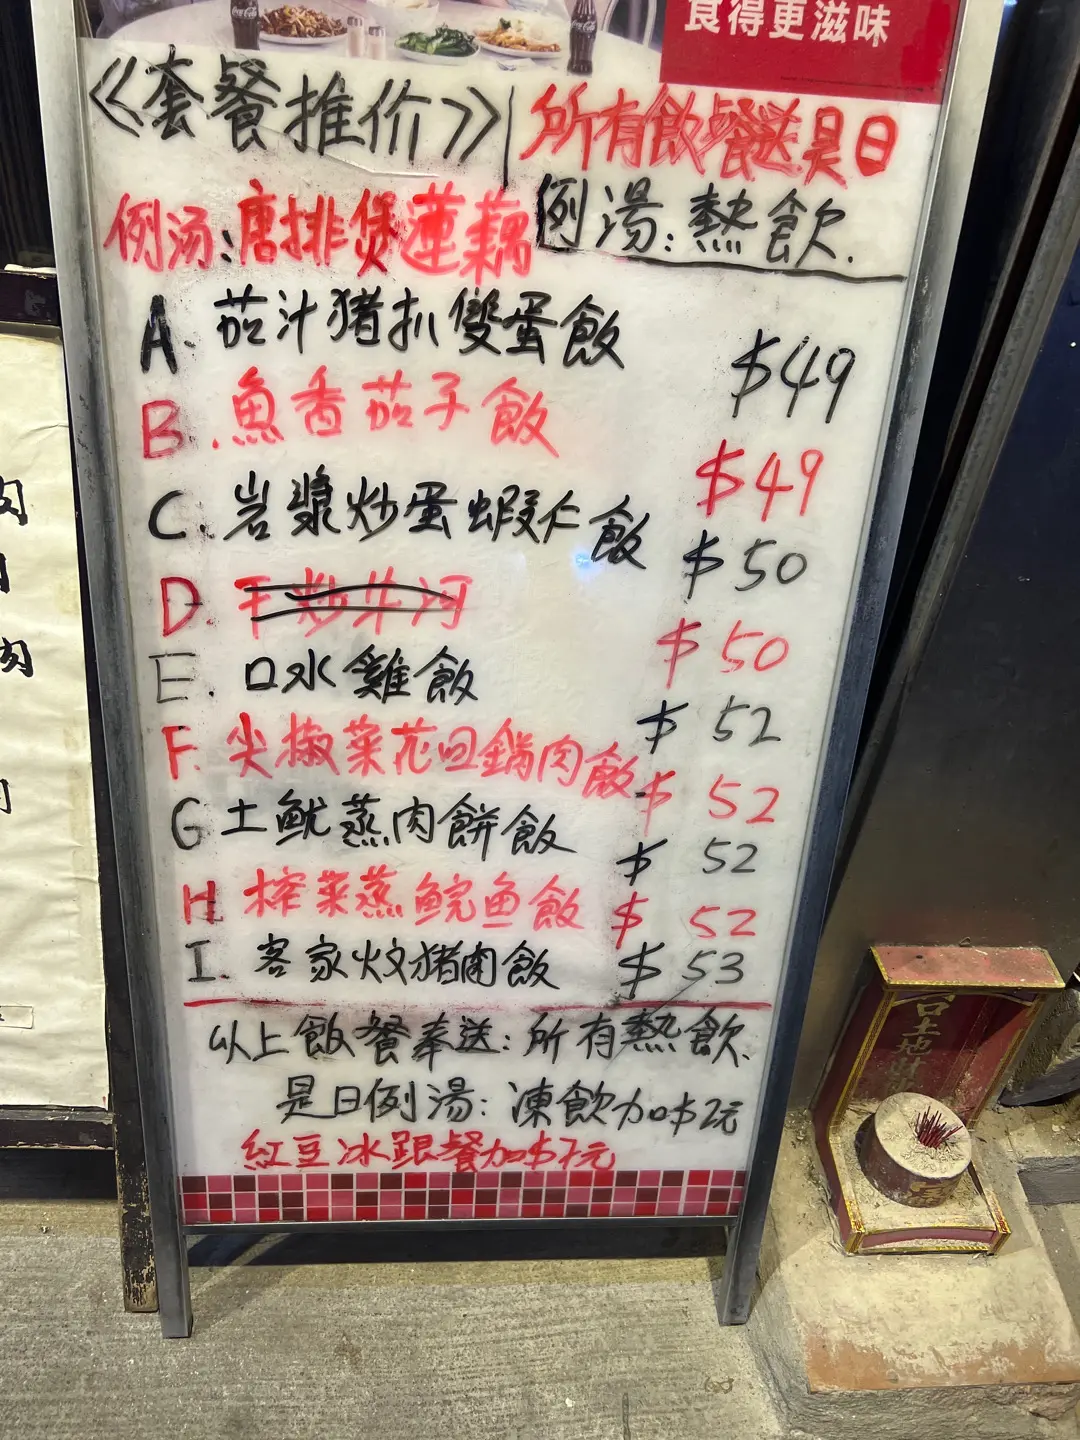 食得更滋味
《套餐推介》
所有飯餐送是日
例汤:唐排煲蓮藕
例湯:熱飲.
A. 茄汁猪扒雙蛋飯 $49
B. 魚香茄子飯 $49
C. 岩漿炒蛋蝦仁飯 $50
D. 干炒牛河 $50
E. 口水雞飯 $52
F. 尖椒菜花回鍋肉飯 $52
G 土魷蒸肉餅飯 $52
H. 榨菜蒸鲩鱼飯 $52
I. 客家炆猪肉飯 $53
以上飯餐奉送:所有熱飲.
是日例湯:凍飲加$2元
紅豆冰跟餐加$7元